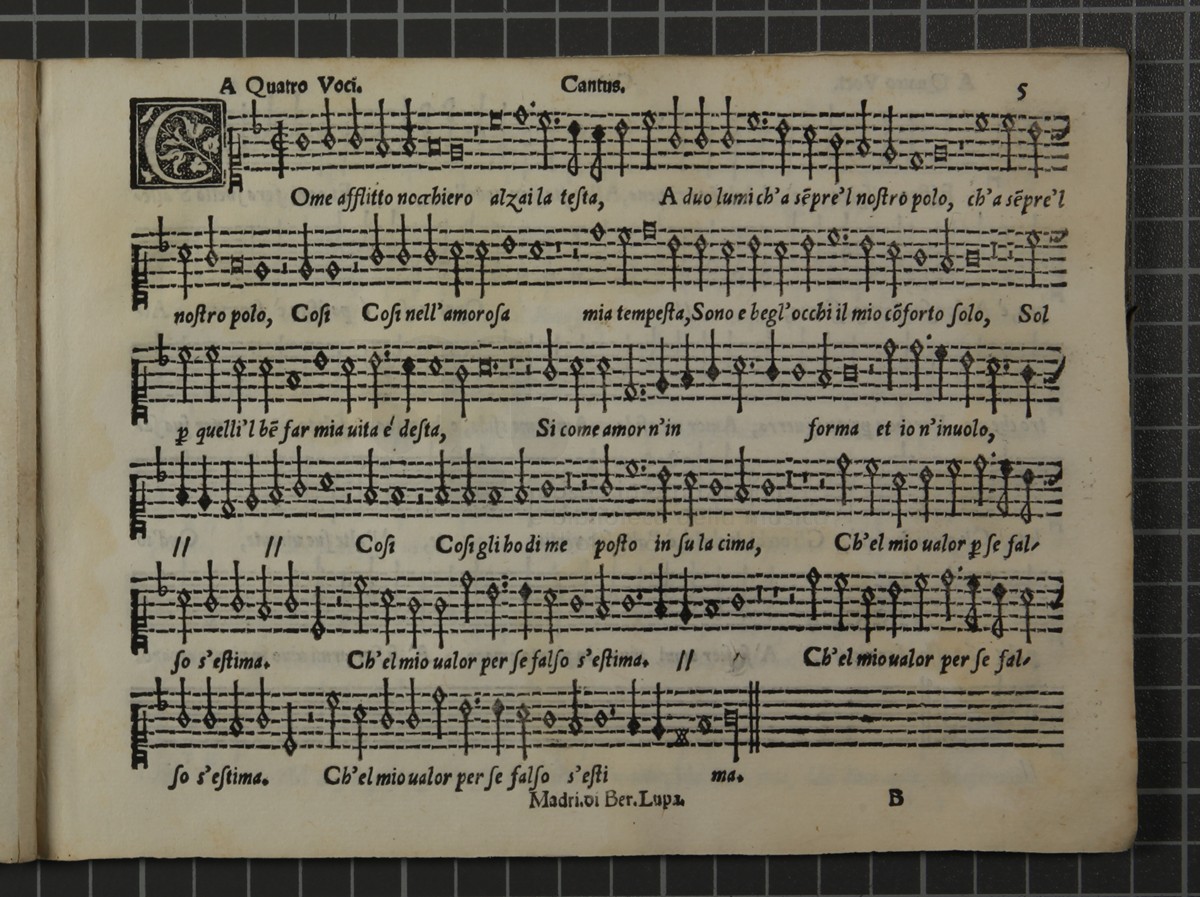 A Quatro Voci. Cantus. 5
COme afflitto nocchiero alzai la testa, A duo lumi ch'a sẽpre'l nostro polo, ch'a sẽpre'l
nostro polo, Cosi Cosi nell'amorosa mia tempesta, Sono e begl'occhi il mio cõforto solo, Sol
ꝑ quelli'l bẽ far mia uita é desta, Si come amor n'in forma et io n'inuolo,
// // Cosi Cosi gli ho di me posto in su la cima, Ch'el mio ualor ꝑ se fal-
so s'estima. Ch'el mio ualor per se falso s'estima. // Ch'el mio ualor per se fal-
so s'estima. Ch'el mio ualor per se falso s'esti ma.
Madri.di Ber.Lupa. B